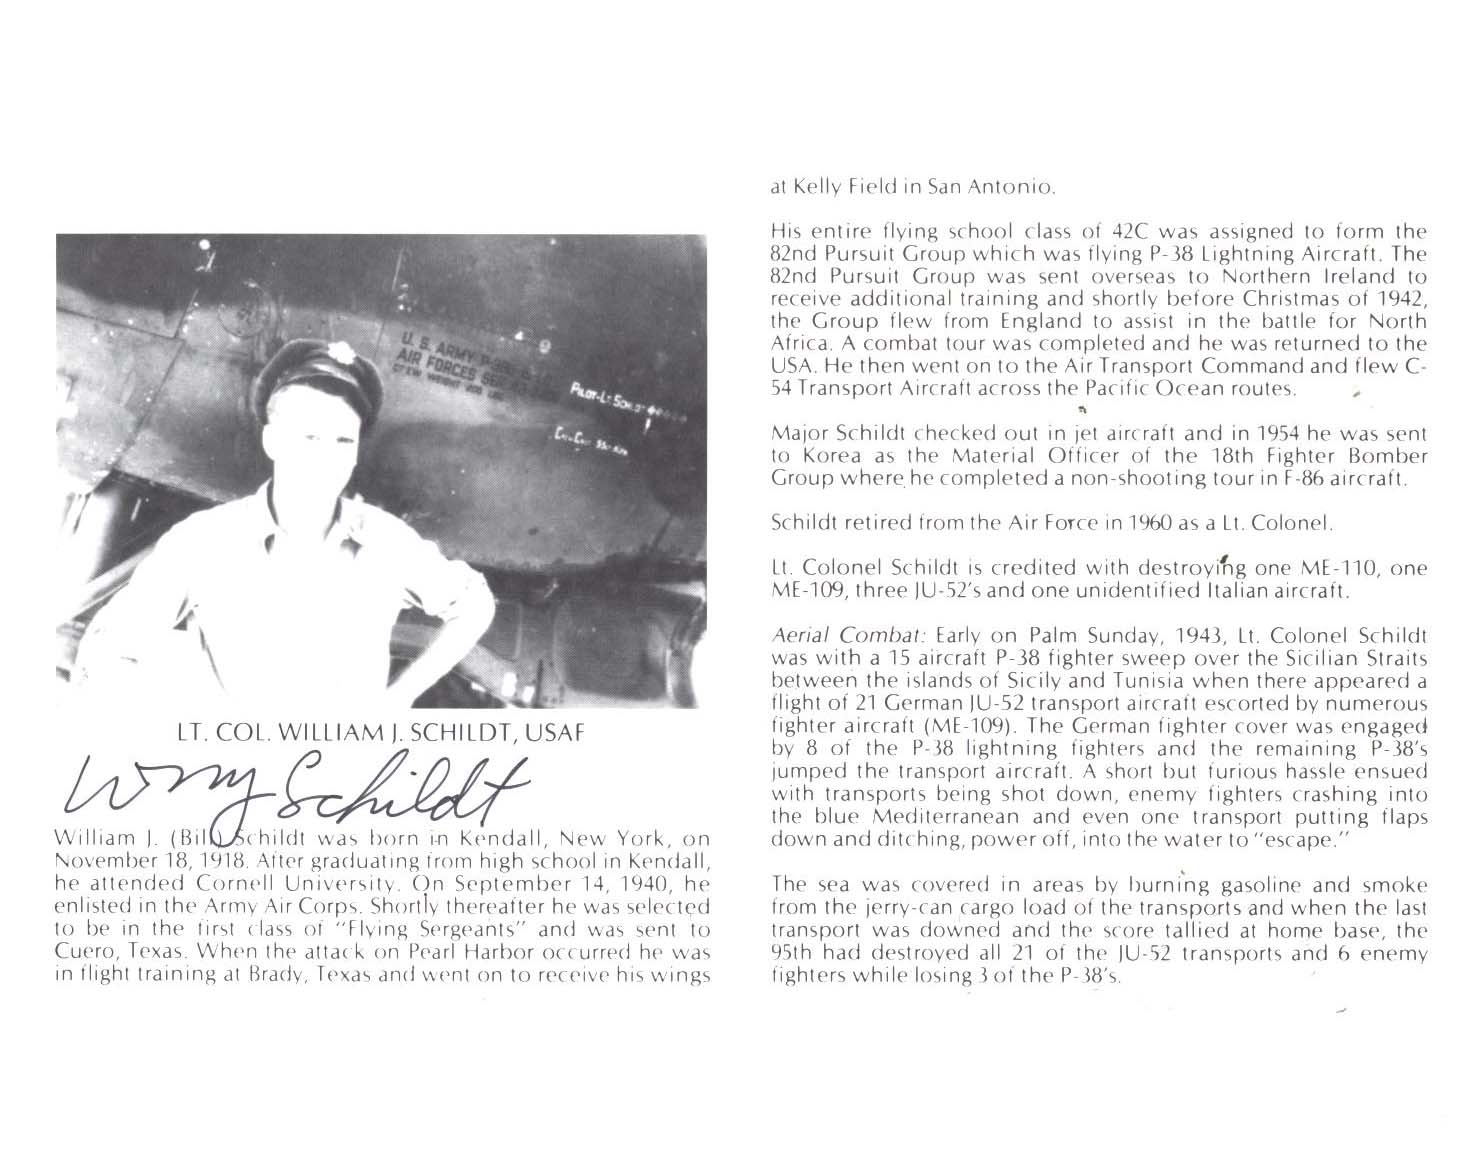 U. S. ARMY P-38
AIR FORCES SER
CREW WEIGHT
PILOT-LT SCHILDT
LT. COL. WILLIAM J. SCHILDT, USAF
Wm J Schildt
William J. (Bill) Schildt was born in Kendall, New York, on
November 18, 1918. After graduating from high school in Kendall,
he attended Cornell University. On September 14, 1940, he
enlisted in the Army Air Corps. Shortly thereafter he was selected
to be in the first class of "Flying Sergeants" and was sent to
Cuero, Texas. When the attack on Pearl Harbor occurred he was
in flight training at Brady, Texas and went on to receive his wings
at Kelly Field in San Antonio.
His entire flying school class of 42C was assigned to form the
82nd Pursuit Group which was flying P-38 Lightning Aircraft. The
82nd Pursuit Group was sent overseas to Northern Ireland to
receive additional training and shortly before Christmas of 1942,
the Group flew from England to assist in the battle for North
Africa. A combat tour was completed and he was returned to the
USA. He then went on to the Air Transport Command and flew C-
54 Transport Aircraft across the Pacific Ocean routes.
Major Schildt checked out in jet aircraft and in 1954 he was sent
to Korea as the Material Officer of the 18th Fighter Bomber
Group where he completed a non-shooting tour in F-86 aircraft.
Schildt retired from the Air Force in 1960 as a Lt. Colonel.
Lt. Colonel Schildt is credited with destroying one ME-110, one
ME-109, three JU-52's and one unidentified Italian aircraft.
Aerial Combat: Early on Palm Sunday, 1943, Lt. Colonel Schildt
was with a 15 aircraft P-38 fighter sweep over the Sicilian Straits
between the islands of Sicily and Tunisia when there appeared a
flight of 21 German JU-52 transport aircraft escorted by numerous
fighter aircraft (ME-109). The German fighter cover was engaged
by 8 of the P-38 lightning fighters and the remaining P-38's
jumped the transport aircraft. A short but furious hassle ensued
with transports being shot down, enemy fighters crashing into
the blue Mediterranean and even one transport putting flaps
down and ditching, power off, into the water to "escape."
The sea was covered in areas by burning gasoline and smoke
from the jerry-can cargo load of the transports and when the last
transport was downed and the score tallied at home base, the
95th had destroyed all 21 of the JU-52 transports and 6 enemy
fighters while losing 3 of the P-38's.